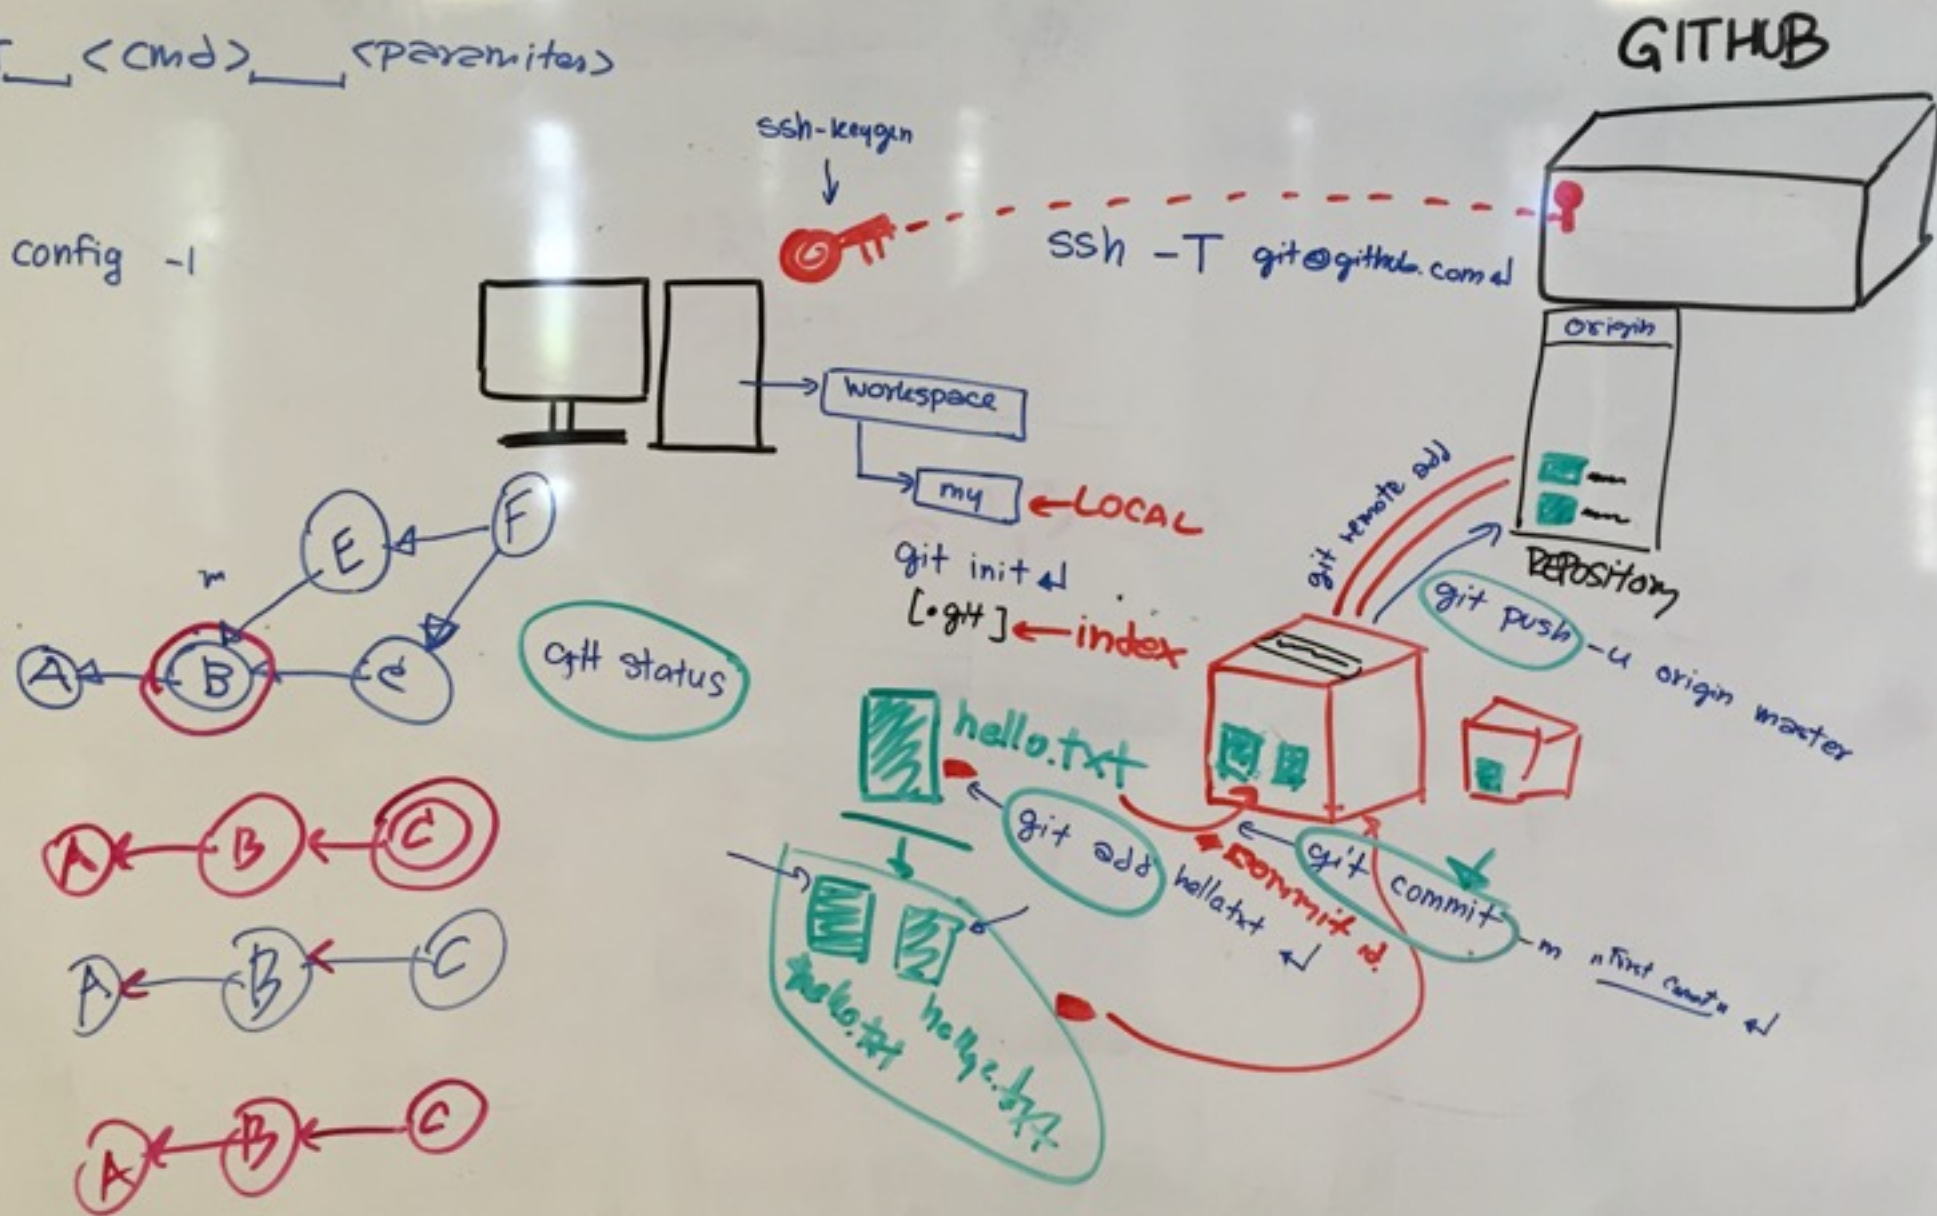 GITHUB
<cmd> <paramiter>
ssh-keygen
config -l
ssh -T git@github.com↲
origin
workspace
my ←LOCAL
git init ↲
[.git] ←index
git remote add
REPOSITORY
git push -u origin master
E F
m
A B C
git status
hello.txt
git add hello.txt ↲
commit
git commit -m "First Commit" ↲
hello.txt
A B C
A B C
A B C